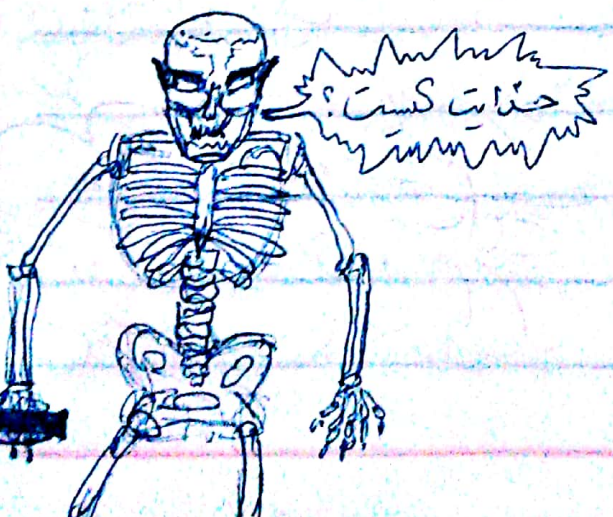 خدایت کیست؟